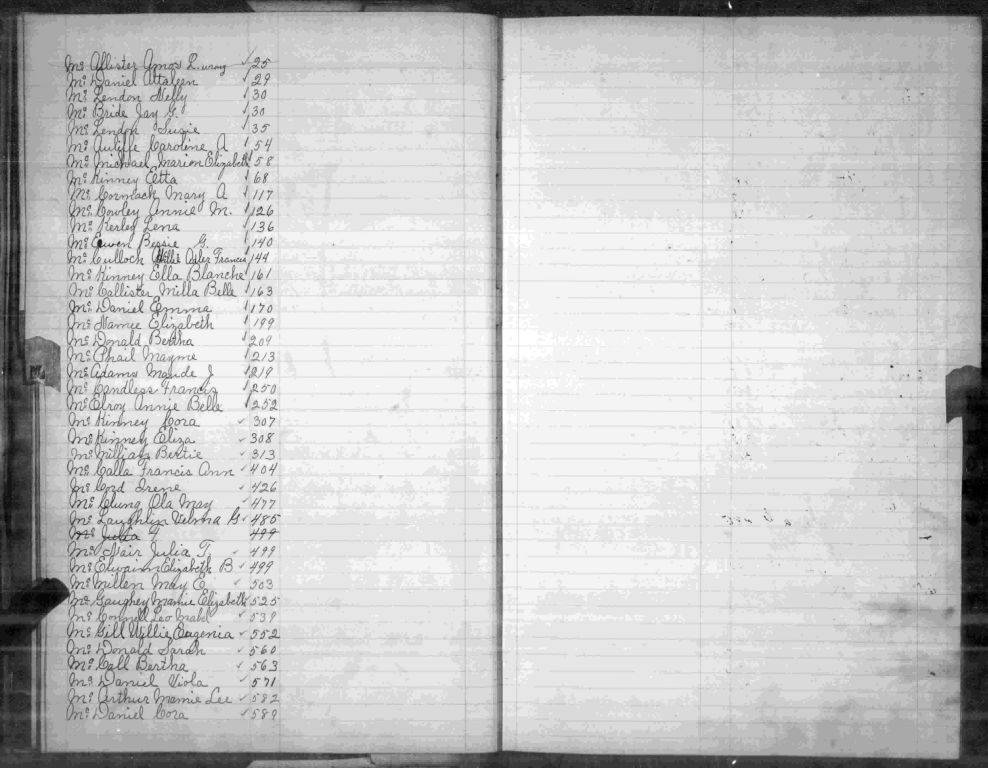 Mc Allister Amor L. ✓ 25
Mc Daniel Attaleen ✓ 29
Mc Lendon Nelly ✓ 30
Mc Bride Jay G. ✓ 30
Mc Lendon Susie ✓ 35
Mc Auliffe Caroline A ✓ 54
Mc Michael Marion Elizabeth ✓ 58
Mc Kinney Etta ✓ 68
Mc Cormack Mary A ✓ 117
Mc Cowley Annie M. ✓ 126
Mc Kerley Lena ✓ 136
Mc Ewen Bessie G. ✓ 140
Mc Culloch Francis ✓ 144
Mc Kinney Ella Blanche ✓ 161
Mc Callister Milla Belle ✓ 163
Mc Daniel Emma ✓ 170
Mc Namee Elizabeth ✓ 199
Mc Donald Bertha ✓ 209
Mc Phail Mayme ✓ 213
Mc Adams Maude J ✓ 219
Mc Candless Francis ✓ 250
Mc Elroy Annie Belle ✓ 252
Mc Kinney Cora ✓ 307
Mc Kinney Eliza ✓ 308
Mc Millian Bertie ✓ 313
Mc Calla Francis Ann ✓ 404
Mc Cord Irene ✓ 426
Mc Clung Ola May ✓ 477
Mc Laughlin Velma G ✓ 485
Mc Julia T 499
Mc Nair Julia T. ✓ 499
Mc Elwain Elizabeth B ✓ 499
Mc Millen May E ✓ 503
Mc Gaughey Mamie Elizabeth ✓ 525
Mc Connell Leo ✓ 539
Mc Gill Willie Eugenia ✓ 552
Mc Donald Sarah ✓ 560
Mc Call Bertha ✓ 563
Mc Daniel Viola ✓ 571
Mc Arthur Mamie Lee ✓ 582
Mc Daniel Cora ✓ 589